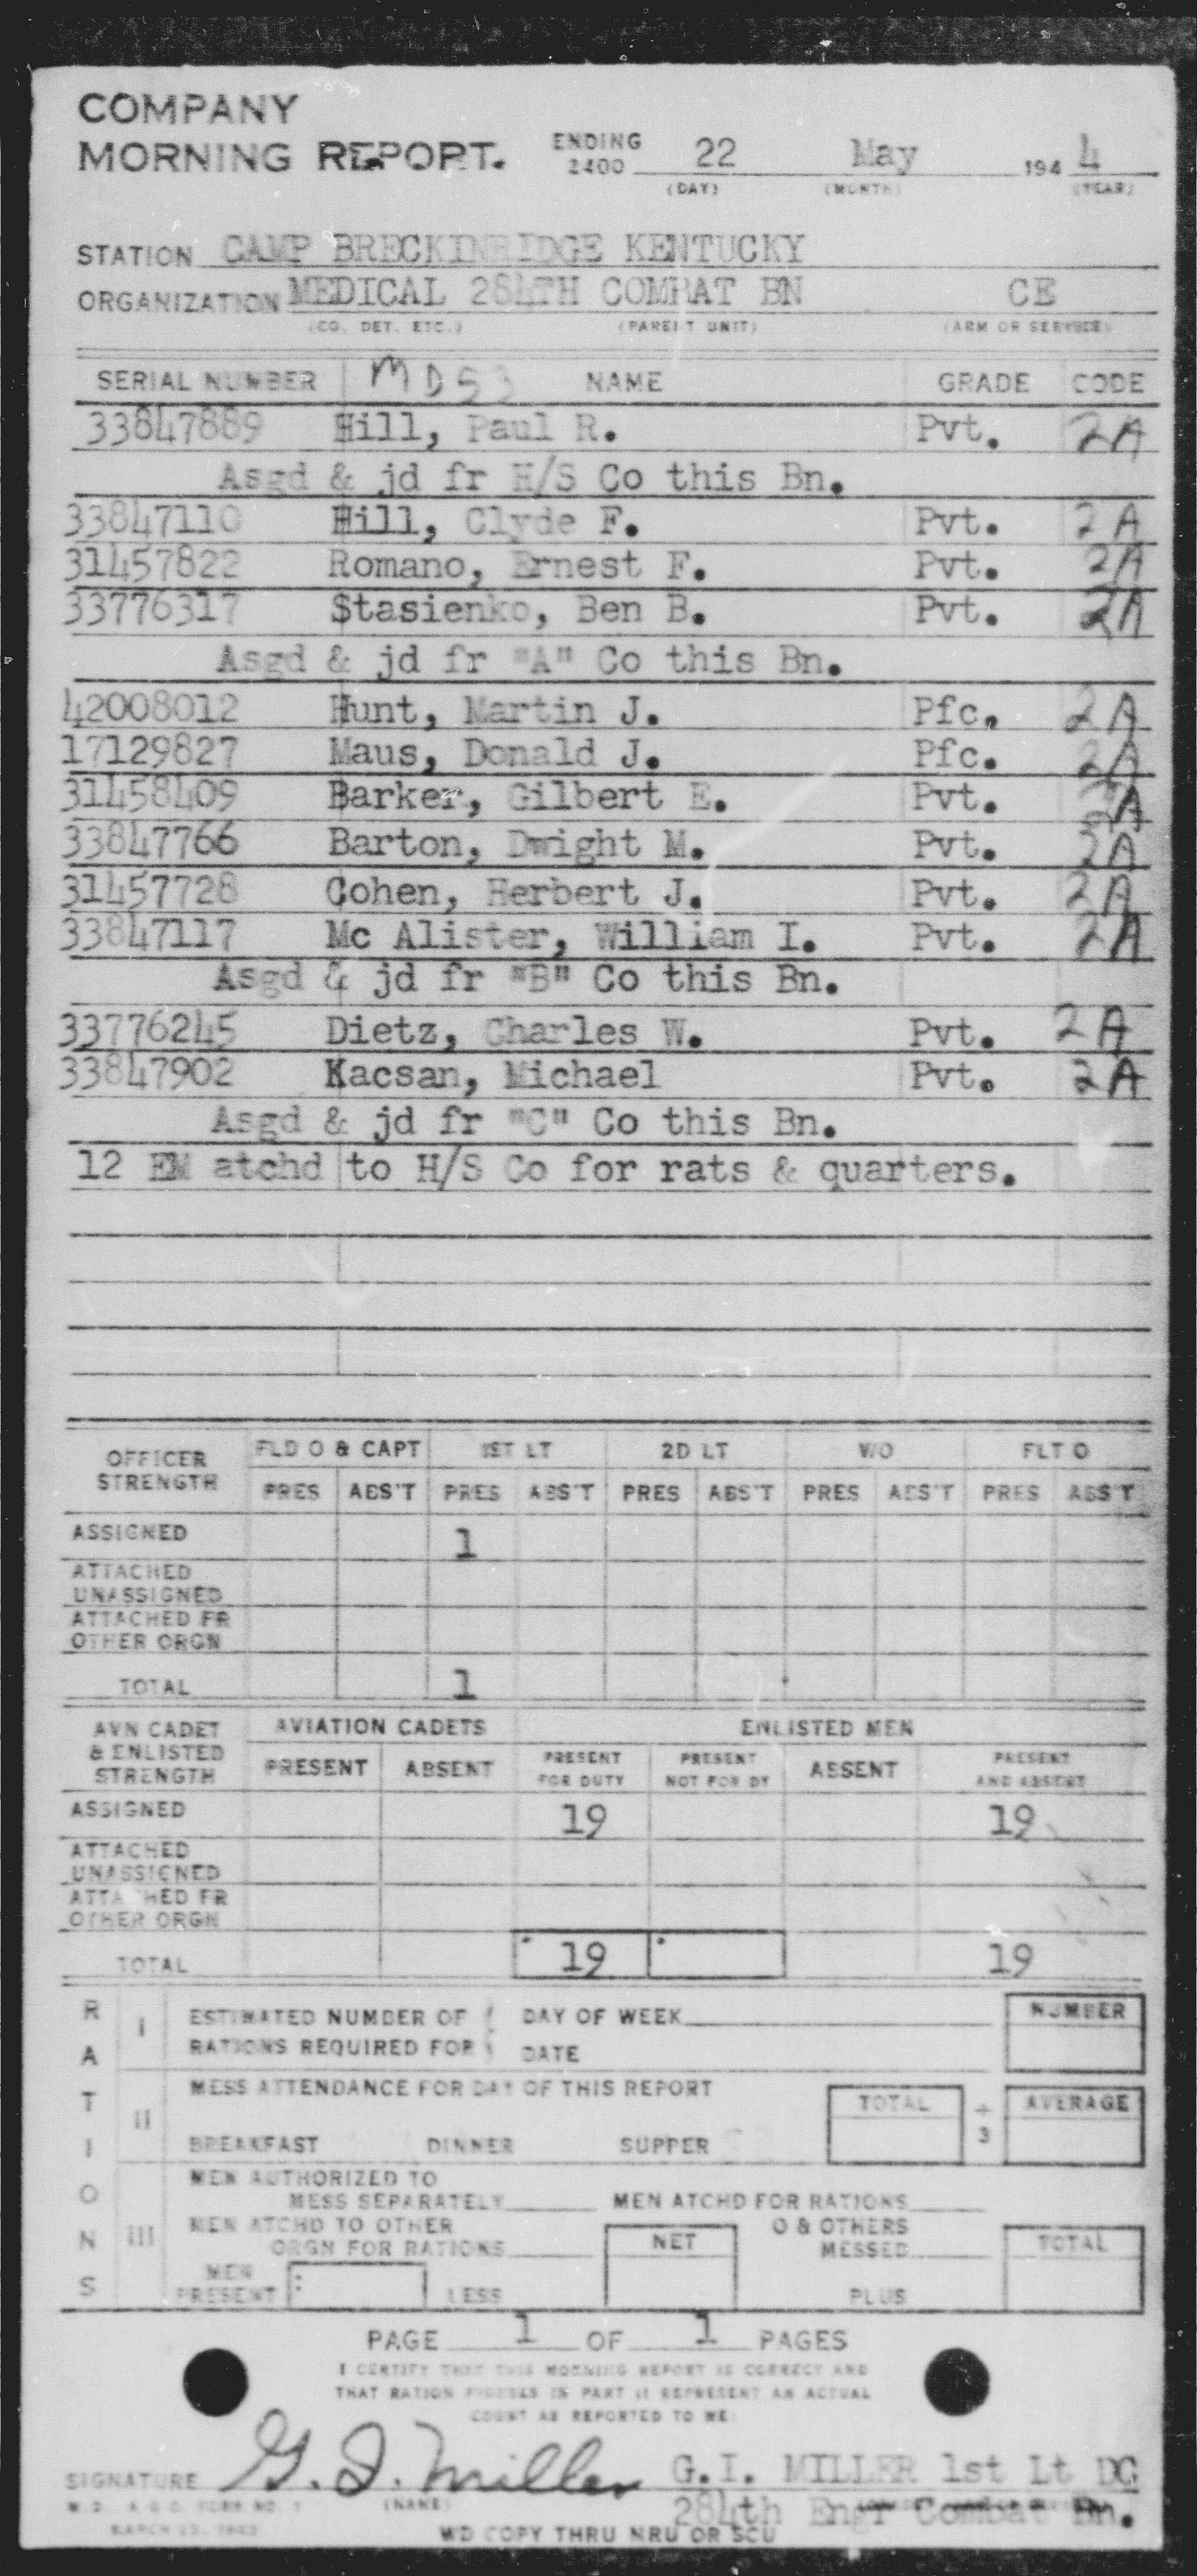 COMPANY
MORNING REPORT. ENDING 2400 22 May 194 4
(DAY) (MONTH) (YEAR)
STATION CAMP BRECKINRIDGE KENTUCKY
ORGANIZATION MEDICAL 284TH COMBAT BN CE
(CO. DET. ETC.) (PARENT UNIT) (ARM OR SERVICE)
SERIAL NUMBER MD53 NAME GRADE CODE
33847889 Hill, Paul R. Pvt. 2A
Asgd & jd fr H/S Co this Bn.
33847110 Hill, Clyde F. Pvt. 2A
31457822 Romano, Ernest F. Pvt. 2A
33776317 Stasienko, Ben B. Pvt. 2A
Asgd & jd fr "A" Co this Bn.
42008012 Hunt, Martin J. Pfc. 2A
17129827 Maus, Donald J. Pfc. 2A
31458409 Barker, Gilbert E. Pvt. 2A
33847766 Barton, Dwight M. Pvt. 2A
31457728 Cohen, Herbert J. Pvt. 2A
33847117 Mc Alister, William I. Pvt. 2A
Asgd & jd fr "B" Co this Bn.
33776245 Dietz, Charles W. Pvt. 2A
33847902 Kacsan, Michael Pvt. 2A
Asgd & jd fr "C" Co this Bn.
12 EM atchd to H/S Co for rats & quarters.
OFFICER STRENGTH FLD O & CAPT 1ST LT 2D LT WO FLT O
PRES ABS'T PRES ABS'T PRES ABS'T PRES ABS'T PRES ABS'T
ASSIGNED 1
ATTACHED UNASSIGNED
ATTACHED FR OTHER ORGN
TOTAL 1
AVN CADET & ENLISTED STRENGTH AVIATION CADETS ENLISTED MEN
PRESENT ABSENT PRESENT FOR DUTY PRESENT NOT FOR DY ABSENT PRESENT AND ABSENT
ASSIGNED 19 19
ATTACHED UNASSIGNED
ATTACHED FR OTHER ORGN
TOTAL 19 19
RATIONS
I ESTIMATED NUMBER OF RATIONS REQUIRED FOR DAY OF WEEK DATE NUMBER
II MESS ATTENDANCE FOR DAY OF THIS REPORT TOTAL ÷ 3 AVERAGE
BREAKFAST DINNER SUPPER
III MEN AUTHORIZED TO MESS SEPARATELY MEN ATCHD FOR RATIONS
MEN ATCHD TO OTHER ORGN FOR RATIONS NET O & OTHERS MESSED TOTAL
MEN PRESENT LESS PLUS
PAGE 1 OF 1 PAGES
I CERTIFY THAT THIS MORNING REPORT IS CORRECT AND
THAT RATION FIGURES IN PART II REPRESENT AN ACTUAL
COUNT AS REPORTED TO ME
SIGNATURE G. I. Miller G.I. MILLER 1st Lt DC
W.D., A.G.O. FORM NO. 1 (NAME) 284th Engr Combat Bn.
MARCH 25, 1943
WD COPY THRU NRU OR SCU